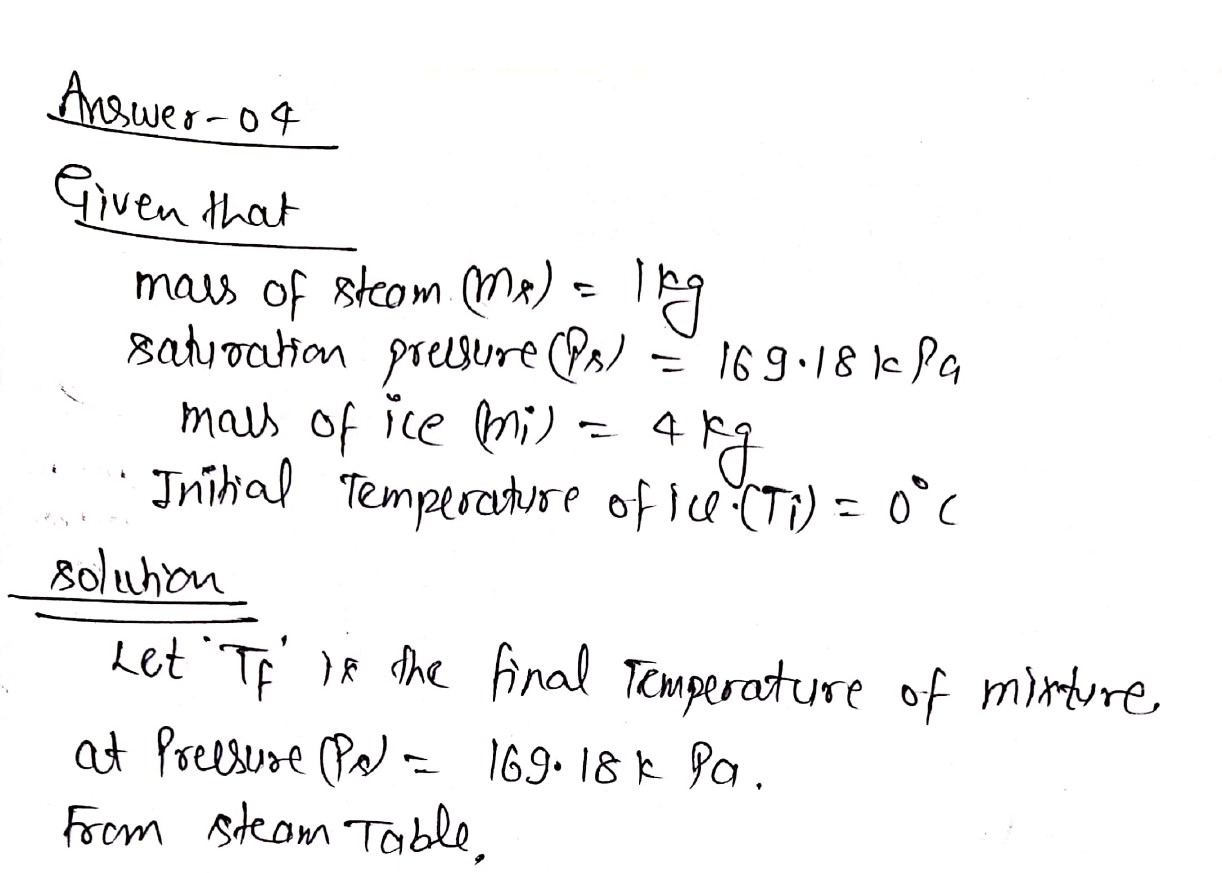 Answer-04
Given that
mass of steam (ms) = 1 kg
saturation pressure (Ps) = 169.18 kPa
mass of ice (mi) = 4 kg
Initial Temperature of ice (Ti) = 0°C
solution
Let 'Tf' is the final Temperature of mixture
at Pressure (Ps) = 169.18 k Pa.
From steam Table,